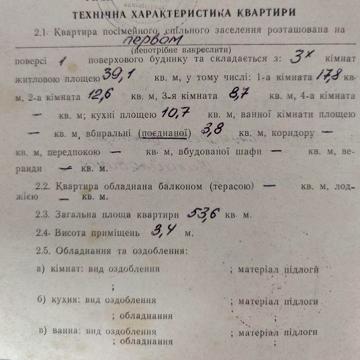 ТЕХНІЧНА ХАРАКТЕРИСТИКА КВАРТИРИ
2.1. Квартира посімейного, спільного заселення розташована на
первом
(непотрібне викреслити)
поверсі 1 поверхового будинку та складається з: 3х кімнат
житловою площею 39,1 кв. м, у тому числі: 1-а кімната 17,8 кв.
м, 2-а кімната 12,6 кв. м, 3-я кімната 8,7 кв. м, 4-а кімната
— кв. м; кухні площею 10,7 кв. м, ванної кімнати площею
— кв. м, вбиральні (поєднаної) 3,8 кв. м, коридору —
кв. м, передпокою — кв. м, вбудованої шафи — кв. м, ве-
ранди — кв. м.
2.2. Квартира обладнана балконом (терасою) — кв. м, лод-
жією — кв. м.
2.3. Загальна площа квартири 53,6 кв. м.
2.4. Висота приміщень 3,4 м.
2.5. Обладнання та оздоблення:
а) кімнат: вид оздоблення ; матеріал підлоги
;
б) кухня: вид оздоблення ; матеріал підлоги
; обладнання ;
в) ванна: вид оздоблення ; матеріал підлоги
; обладнання ;